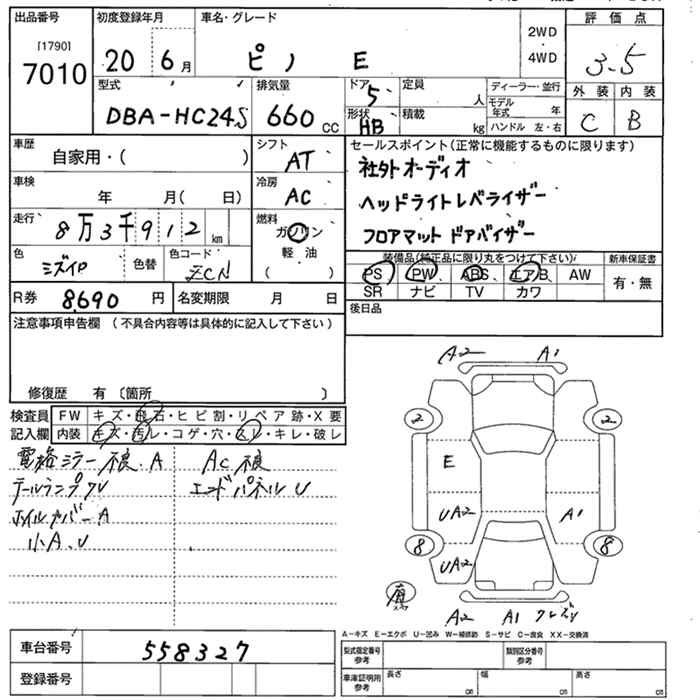 出品番号
[1790]
7010
初度登録年月
20 6月
車名・グレード
ピノ E
2WD
4WD
評価点
3.5
型式
DBA-HC24S
排気量
660 CC
ドア 5
形状 HB
定員 人
積載 kg
ディーラー・並行
モデル年式 年
ハンドル 左・右
外装 内装
C B
車歴
自家用・( )
シフト
AT
車検
年 月( 日)
冷房
AC
走行
8万3千912 km
燃料
ガソリン
軽油
( )
色
ミズイロ
色替
色コード
ZCN
R券 8,690 円
名変期限 月 日
セールスポイント(正常に機能するものに限ります)
社外オーディオ
ヘッドライトレベライザー
フロアマット ドアバイザー
装備品(純正品に限り丸をつけて下さい)
新車保証書
PS PW ABS エアB AW
SR ナビ TV カワ
有・無
後日品
注意事項申告欄 (不具合内容等は具体的に記入して下さい)
修復歴 有 〔箇所 〕
検査員記入欄
FW キズ・飛石・ヒビ割・リペア跡・X要
内装 キズ・汚レ・コゲ・穴・スレ・キレ・破レ
電格ミラー不良.A AC不良
テールランプクU エンドパネルU
ホイルカバーA
小A.U
A2 A1
2 2
E
UA2 A1
8 8
UA2
A2 A1
A-キズ E-エクボ U-凹み W-補修跡 S-サビ C-腐食 XX-交換済
車台番号 558327
登録番号
型式指定番号 参考
類別区分番号 参考
車庫証明用 参考
長さ cm 幅 cm 高さ cm